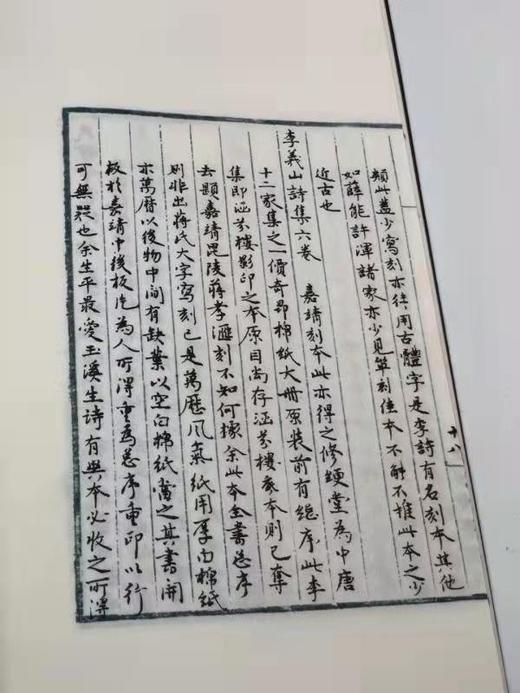 類此蓋少寫刻亦往用古體字是李詩有名刻本其他
如薛能許渾諸家亦少見單刻佳本不能不推此本之少
近古也
李義山詩集六卷 嘉靖刻本此亦得之修綆堂為中唐
十二家集之一價奇昂棉紙大冊原裝前有總序此李
集即涵芬樓影印之本原目尚存涵芬樓藏本則已奪
去題嘉靖毘陵蔣孝滙刻不知何據余此本全書總序
則非出蔣氏大字寫刻已是萬曆風氣紙用厚白棉紙
亦萬曆以後物中間有缺葉以空白棉紙當之其書開
板於嘉靖中後板片為人所得重為總序重印以行
可無疑也余生平最愛玉溪生詩有異本必收之所得
十八